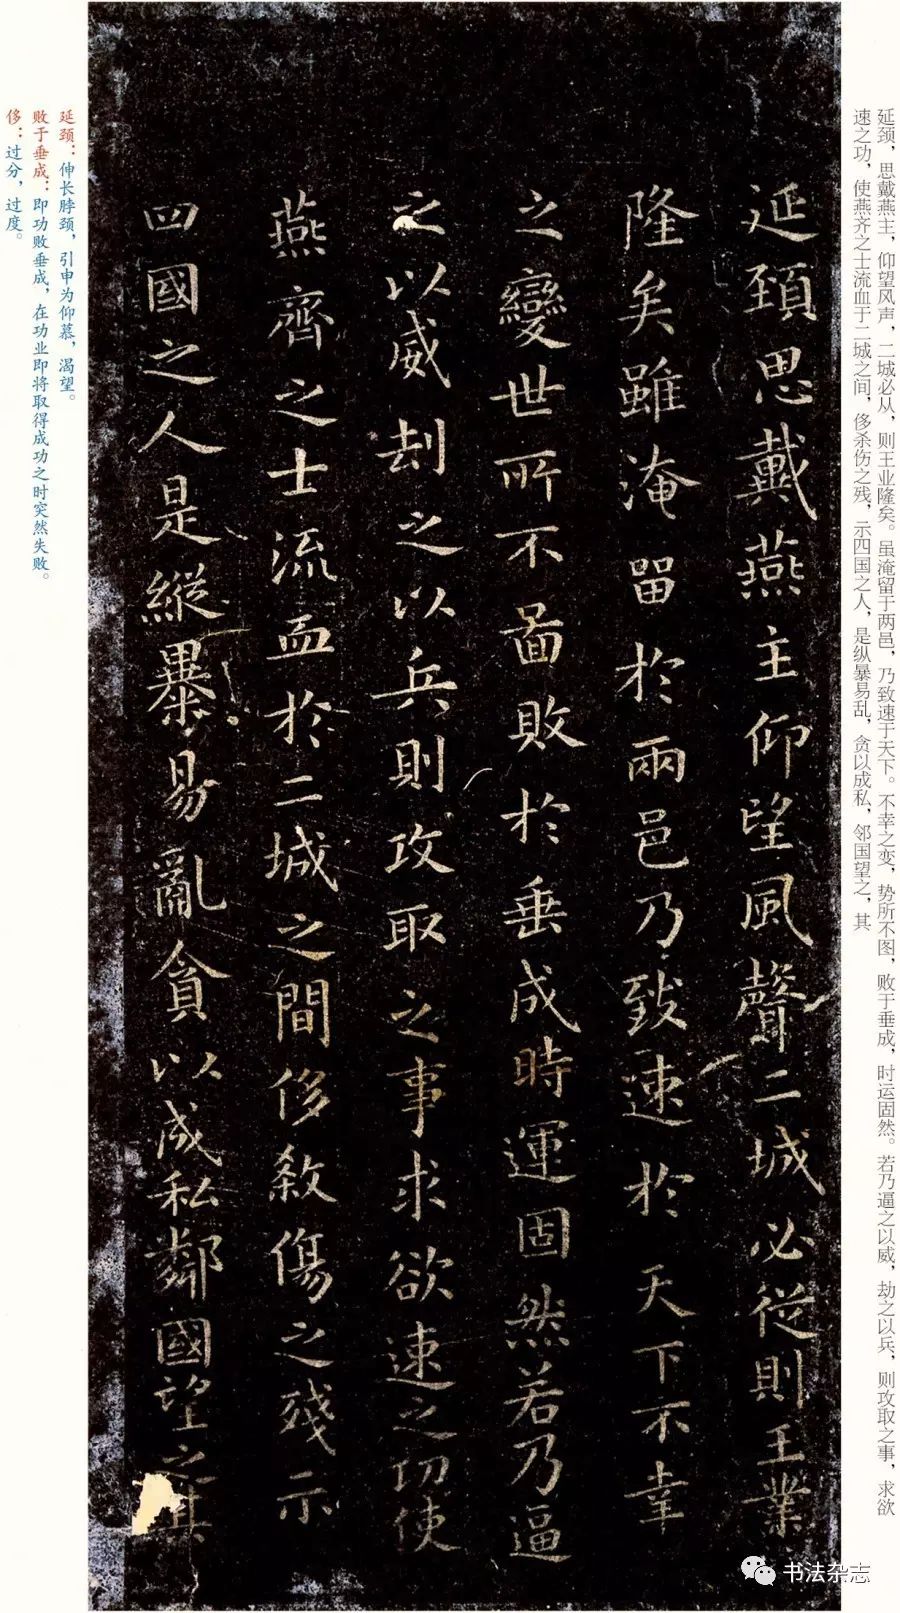 延颈，思戴燕主，仰望风声，二城必从，则王业隆矣。虽淹留于两邑，乃致速于天下。不幸之变，势所不图，败于垂成，时运固然。若乃逼之以威，劫之以兵，则攻取之事，求欲
速之功，使燕齐之士流血于二城之间，侈杀伤之残，示四国之人，是纵暴易乱，贪以成私，邻国望之，其
延頚思戴燕主仰望風聲二城必從則王業
隆矣雖淹留於兩邑乃致速於天下不幸
之變世所不啚敗於垂成時運固然若乃逼
之以威刦之以兵則攻取之事求欲速之功使
燕齊之士流血於二城之間侈敘傷之殘示
四國之人是縱暴易亂貪以成私鄰國望之其
延颈：伸长脖颈，引申为仰慕，渴望。
败于垂成：即功败垂成，在功业即将取得成功之时突然失败。
侈：过分，过度。
书法杂志